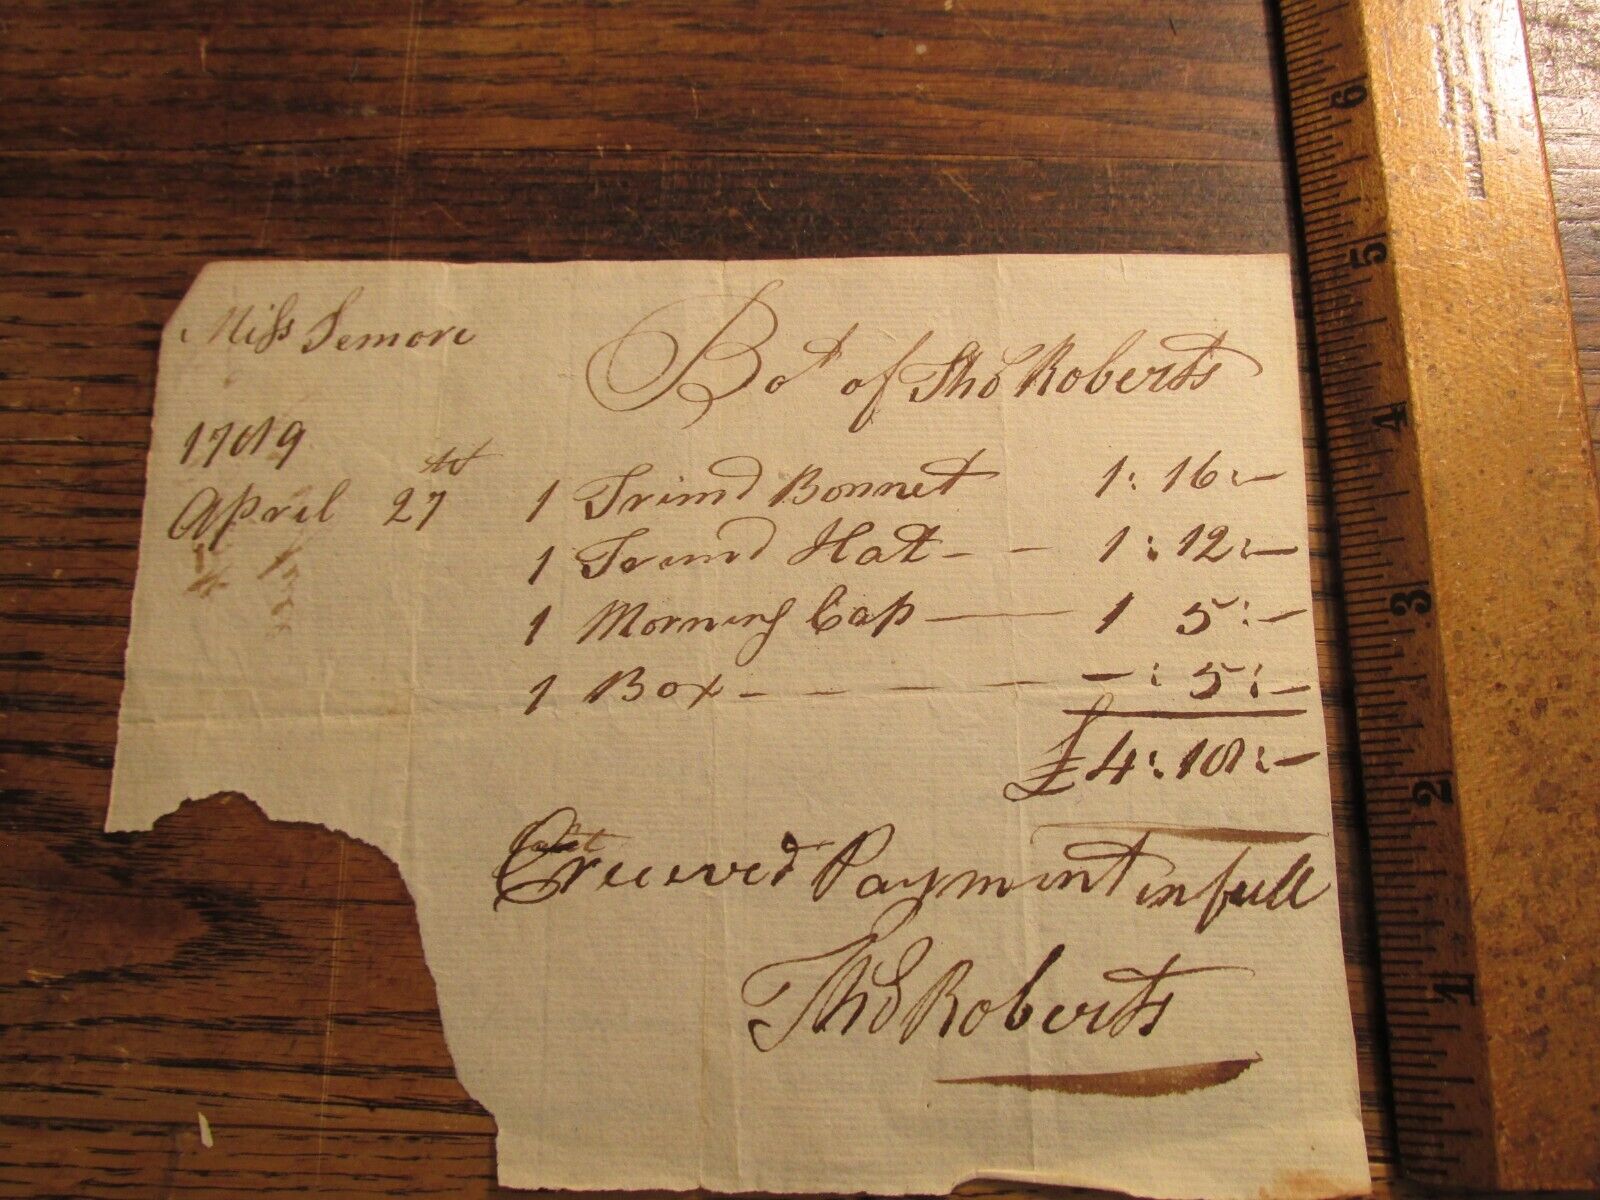 Miss Semore
Bot of Thos Roberts
1789
April 27th
1 Trimd Bonnet 1: 16:-
1 Trimd Hat - - 1: 12:-
1 Morning Cap — 1 5:-
1 Box - - - - -: 5:-
£4: 18:-
received Payment in full
Thos Roberts
6
5
4
3
2
1